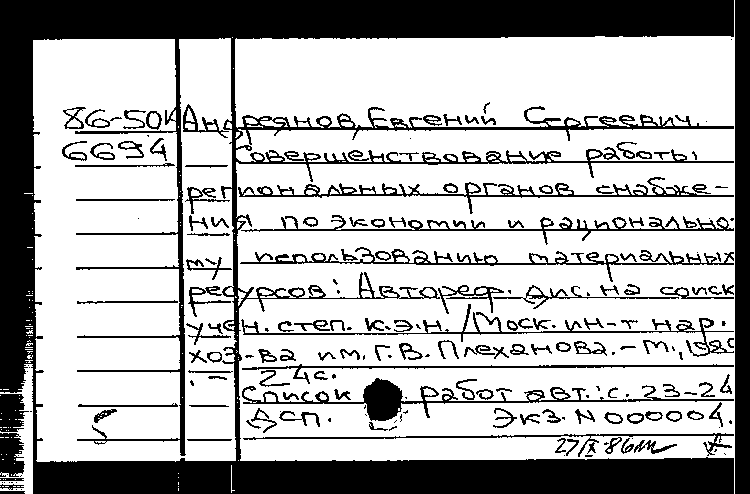 86-50к Андреянов, Евгений Сергеевич.
6694 Совершенствование работы
региональных органов снабже-
ния по экономии и рационально-
му использованию материальных
ресурсов: Автореф. дис. на соиск
учен. степ. к.э.н. / Моск. ин-т нар.
хоз-ва им. Г. В. Плеханова. - М.,
. - 24с.
Список работ авт.: с. 23-24
Дсп. Экз. N 000004.
5
27/IX-86